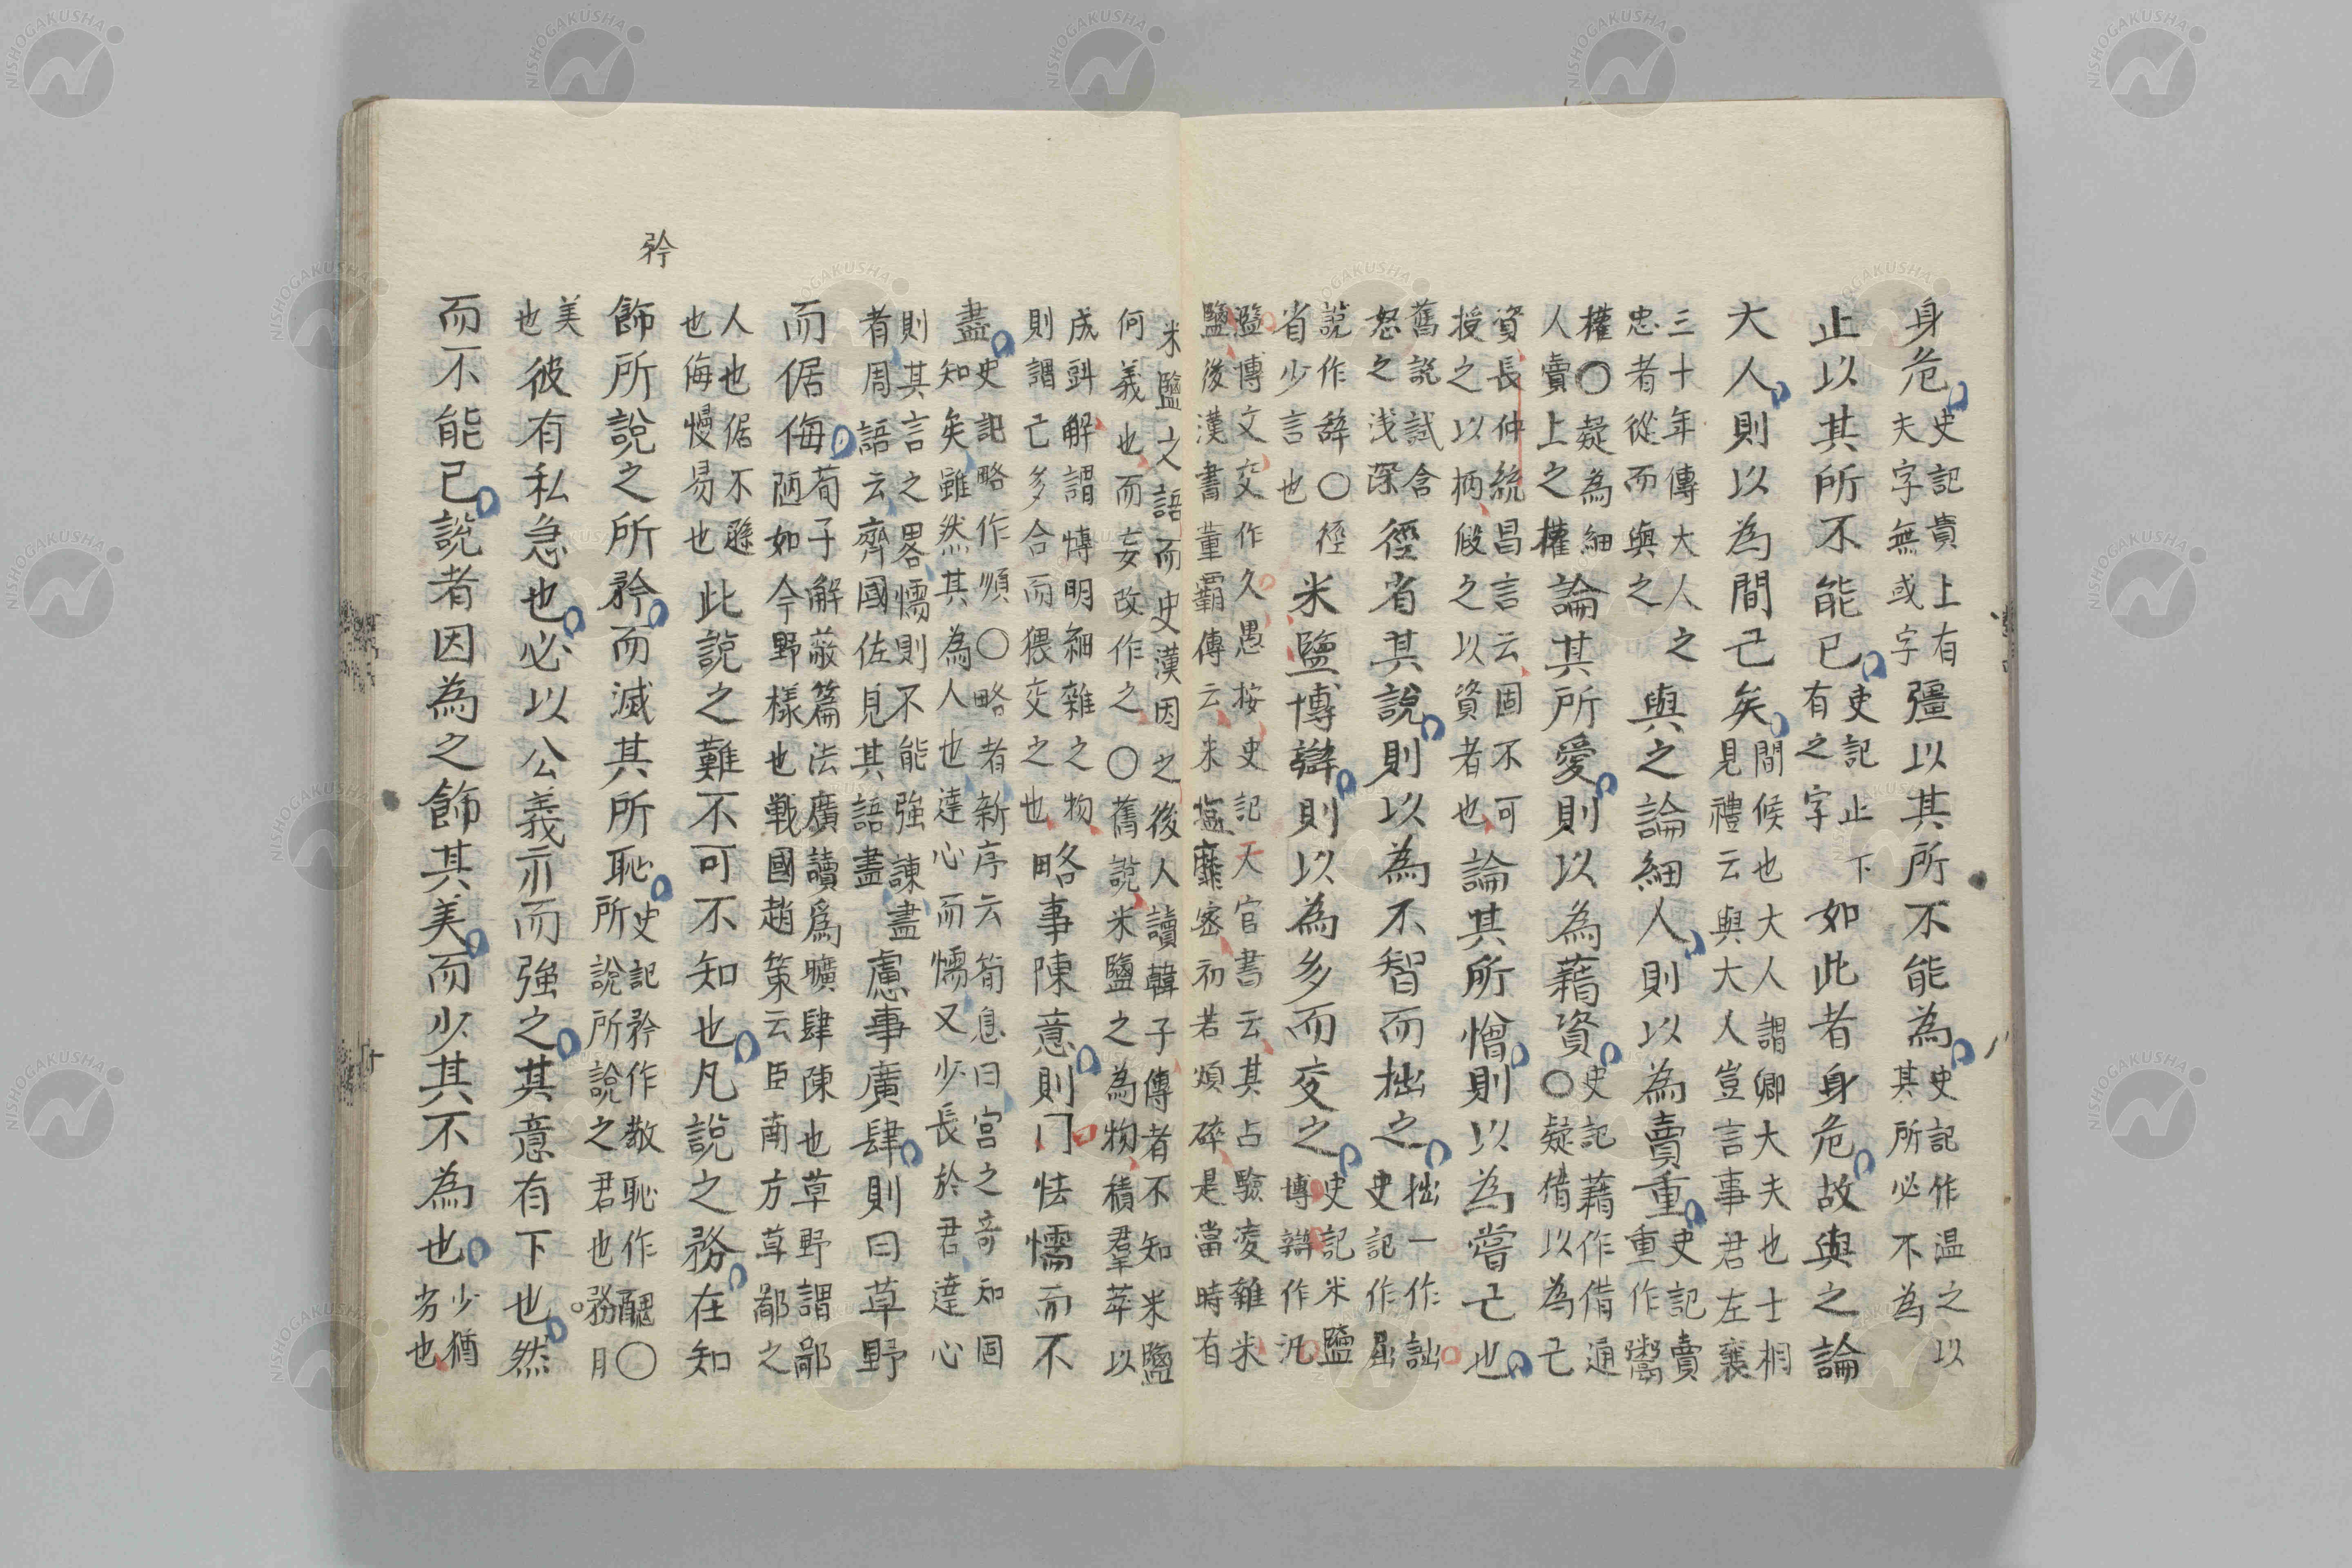 身危史記貴上有夫字無或字彊以其所不能為史記作温之以其所必不為
止以其所不能已史記止下有之字如此者身危故與之論
大人則以為間己矣間候也大人謂卿大夫也士相見禮云與大人豈言事君左襄
三十年傳大人之忠者從而與之與之論細人則以為賣重史記賣重作鬻
權○疑為細人賣上之權論其所愛則以為藉資史記藉作借通○疑借以為己
資長仲統昌言云固不可授之以柄假之以資者也論其所憎則以為嘗己也
舊説試含怒之浅深徑省其説則以為不智而拙之拙一作詘史記作屈
説作辞○徑省少言也米鹽博辯則以為多而交之史記米鹽博辯作汎
濫博文交作久愚按史記天官書云其占驗凌雜米
鹽後漢書董霸傳云米塩靡密初若煩碎是當時有
米鹽之語而史漢因之後人讀韓子傳者不知米鹽
何義也而妄改作之○舊説米鹽之為物積羣萃以
成斞解謂博明細雜之物則謂亡多合而猥交之也略事陳意則曰怯懦而不
盡史記略作順○略者新序云荀息曰宮之奇知固知矣雖然其為人也達心而懦又少長於君達心
則其言之畧懦則不能強諫盡者周語云齊國佐見其語盡慮事廣肆則曰草野
而倨侮荀子解蔽篇法廣讀爲曠肆陳也草野謂鄙陋如今野樣也戦國趙策云臣南方草鄙之
人也倨不遜也侮慢易也此説之難不可不知也凡説之務在知
矜
飾所説之所矜而滅其所恥史記矜作敬恥作醜○所説所説之君也務月
美也彼有私急也必以公義示而強之其意有下也然
而不能已説者因為之飾其美而少其不為也少猶劣也
NISHOGAKUSHA